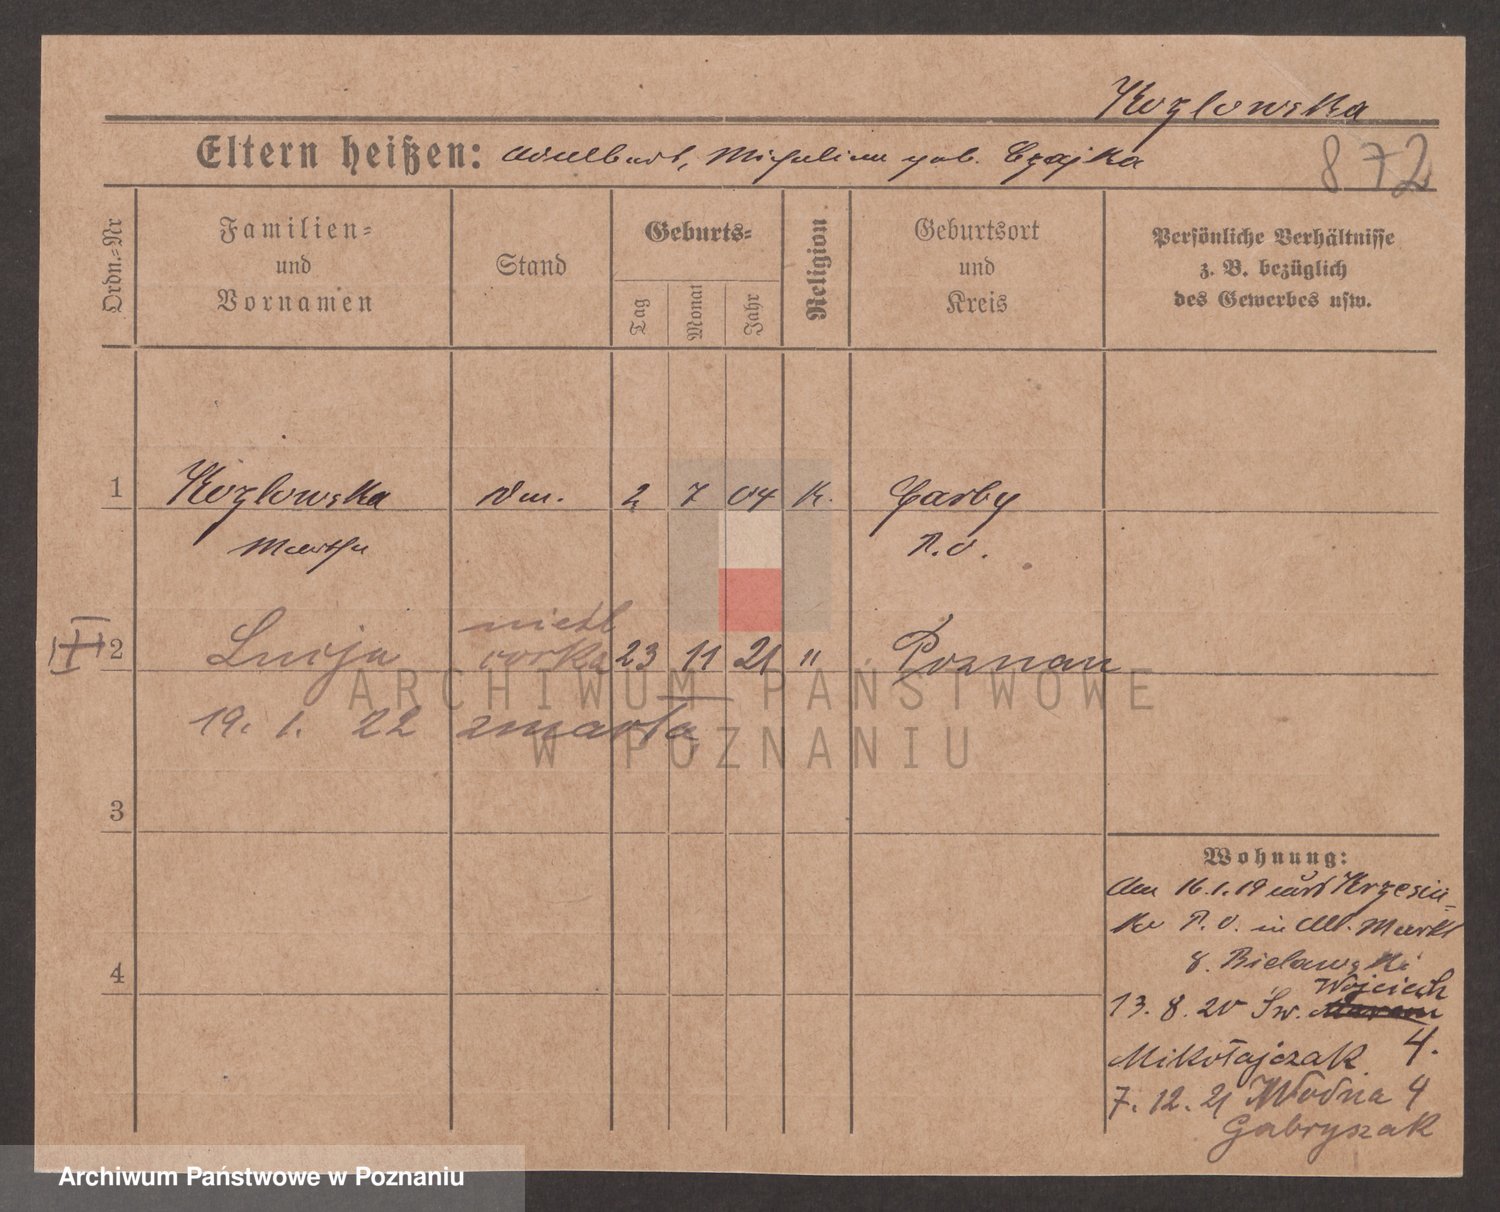 Kozlowska
Eltern heißen: Adalbert, Michalina geb. Czajka
872
Ordn.-Nr
Familien-
und
Vornamen
Stand
Geburts-
Tag
Monat
Jahr
Religion
Geburtsort
und
Kreis
Persönliche Verhältnisse
z. B. bezüglich
des Gewerbes usw.
1 Kozlowska 2 7 04 K. Garby
Martha P. O.
2 Lucja 23 11 21 " Poznan
19. 1. 22 zmarła
3
4
Wohnung:
Am 16.1.19 aus Krzesin-
ka P. O. in Alt. Markt
8. Bielawski
Wojciech
13. 8. 20 Św. 4.
Mikołajczak
7. 12. 21 Wodna 4
Gabryszak
ARCHIWUM PAŃSTWOWE
W POZNANIU
Archiwum Państwowe w Poznaniu